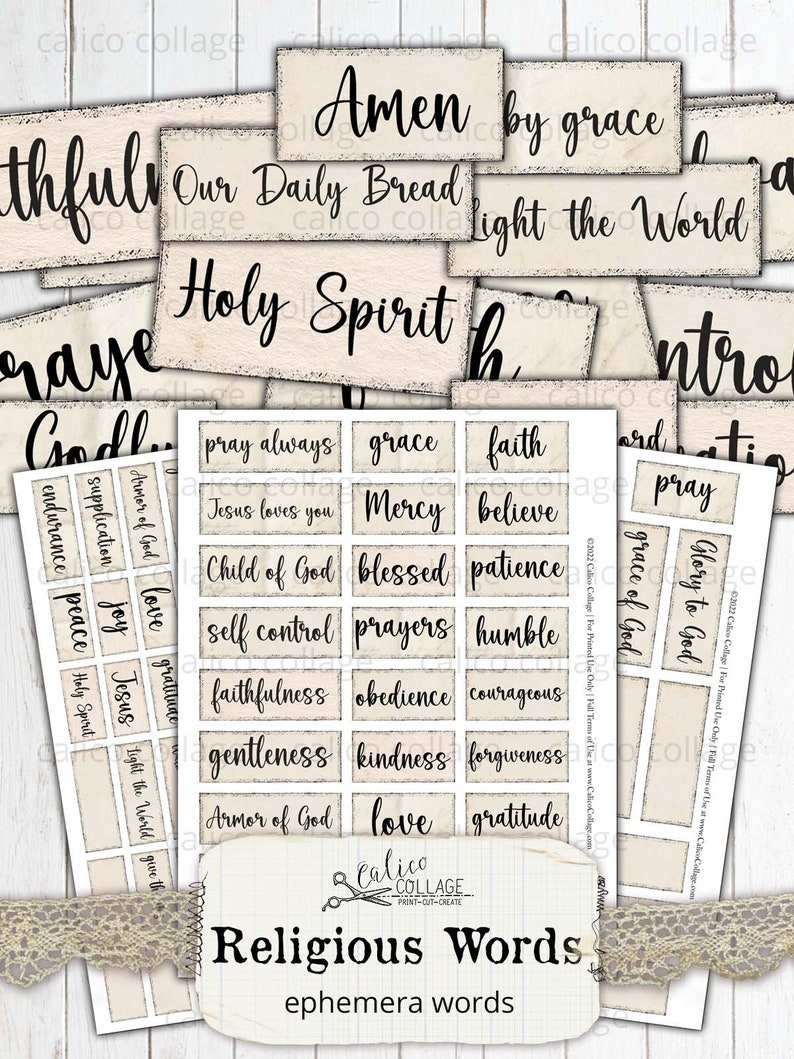 calico collage calico collage calico collage
Amen
by grace
thfuln
Our Daily Bread
Light the World
Holy Spirit
calico collage calico collage calico collage
raye
th
ntrol
Godly
ord
atio
pray always grace faith
Jesus loves you Mercy believe
Child of God blessed patience
self control prayers humble
faithfulness obedience courageous
gentleness kindness forgiveness
Armor of God love gratitude
endurance supplication Armor of God
peace joy love
Holy Spirit Jesus gratitude
Light the World
give than
pray
grace of God Glory to God
©2022 Calico Collage | For Printed Use Only | Full Terms of Use at www.CalicoCollage.com
©2022 Calico Collage | For Printed Use Only | Full Terms of Use at www.CalicoCollage.com
calico collage calico collage calico collage
Calico
COLLAGE
PRINT-CUT-CREATE
Religious Words
ephemera words